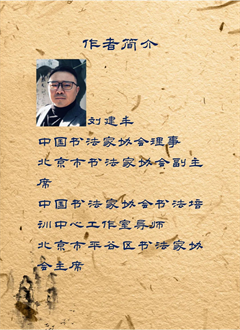 作者简介
刘建丰
中国书法家协会理事
北京市书法家协会副主
席
中国书法家协会书法培
训中心工作室导师
北京市平谷区书法家协
会主席